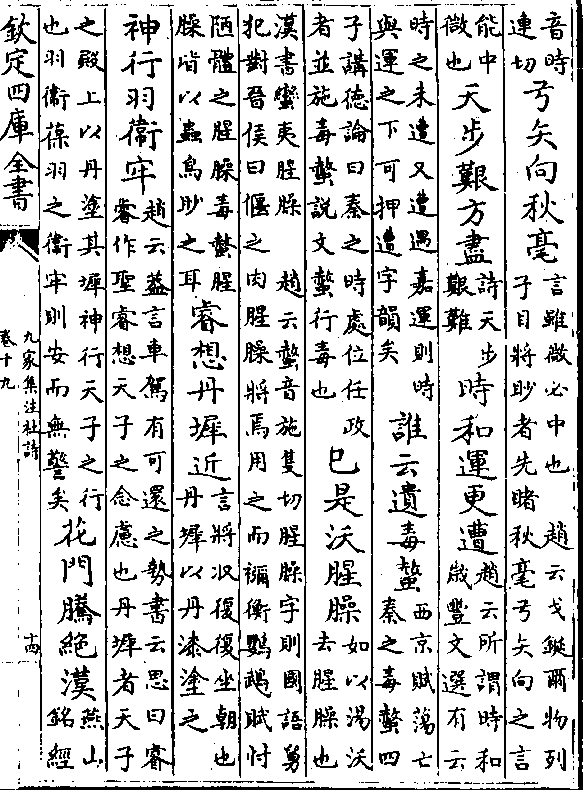 音時
連切
弓矢向秋毫
言雖微必中也　趙云戈鋋爾物列
子目將眇者先睹秋毫弓矢向之言
能中
微也
天步艱方盡
詩天步
艱難
時和運更遭
趙云所謂時和
歲豐文選有云
時之未遭又遭遇嘉運則時
與運之下可押遭字韻矣
誰云遺毒螫
西京賦蕩亡
秦之毒螫四
子講德論曰秦之時處位任政
者並施毒螫說文螫行毒也
已是沃腥臊
如以湯沃
去腥臊也
漢書蠻夷腥臊　趙云螫音施隻切腥臊字則國語舅
犯對晉侯曰偃之肉腥臊將焉用之而禰衡鸚鵡賦忖
陋體之腥臊毒螫腥
臊皆以蟲鳥眇之耳
睿想丹墀近
言將收復復坐朝也
丹墀以丹漆塗之
神行羽衞牢
趙云蓋言車駕有可還之勢書云思曰睿
睿作聖睿想天子之念慮也丹墀者天子
之殿上以丹塗其墀神行天子之行
也羽衞葆羽之衞牢則安而無警矣
花門騰絕漠
燕山
銘經
欽定四庫全書
九家集注杜詩
卷十九
十四